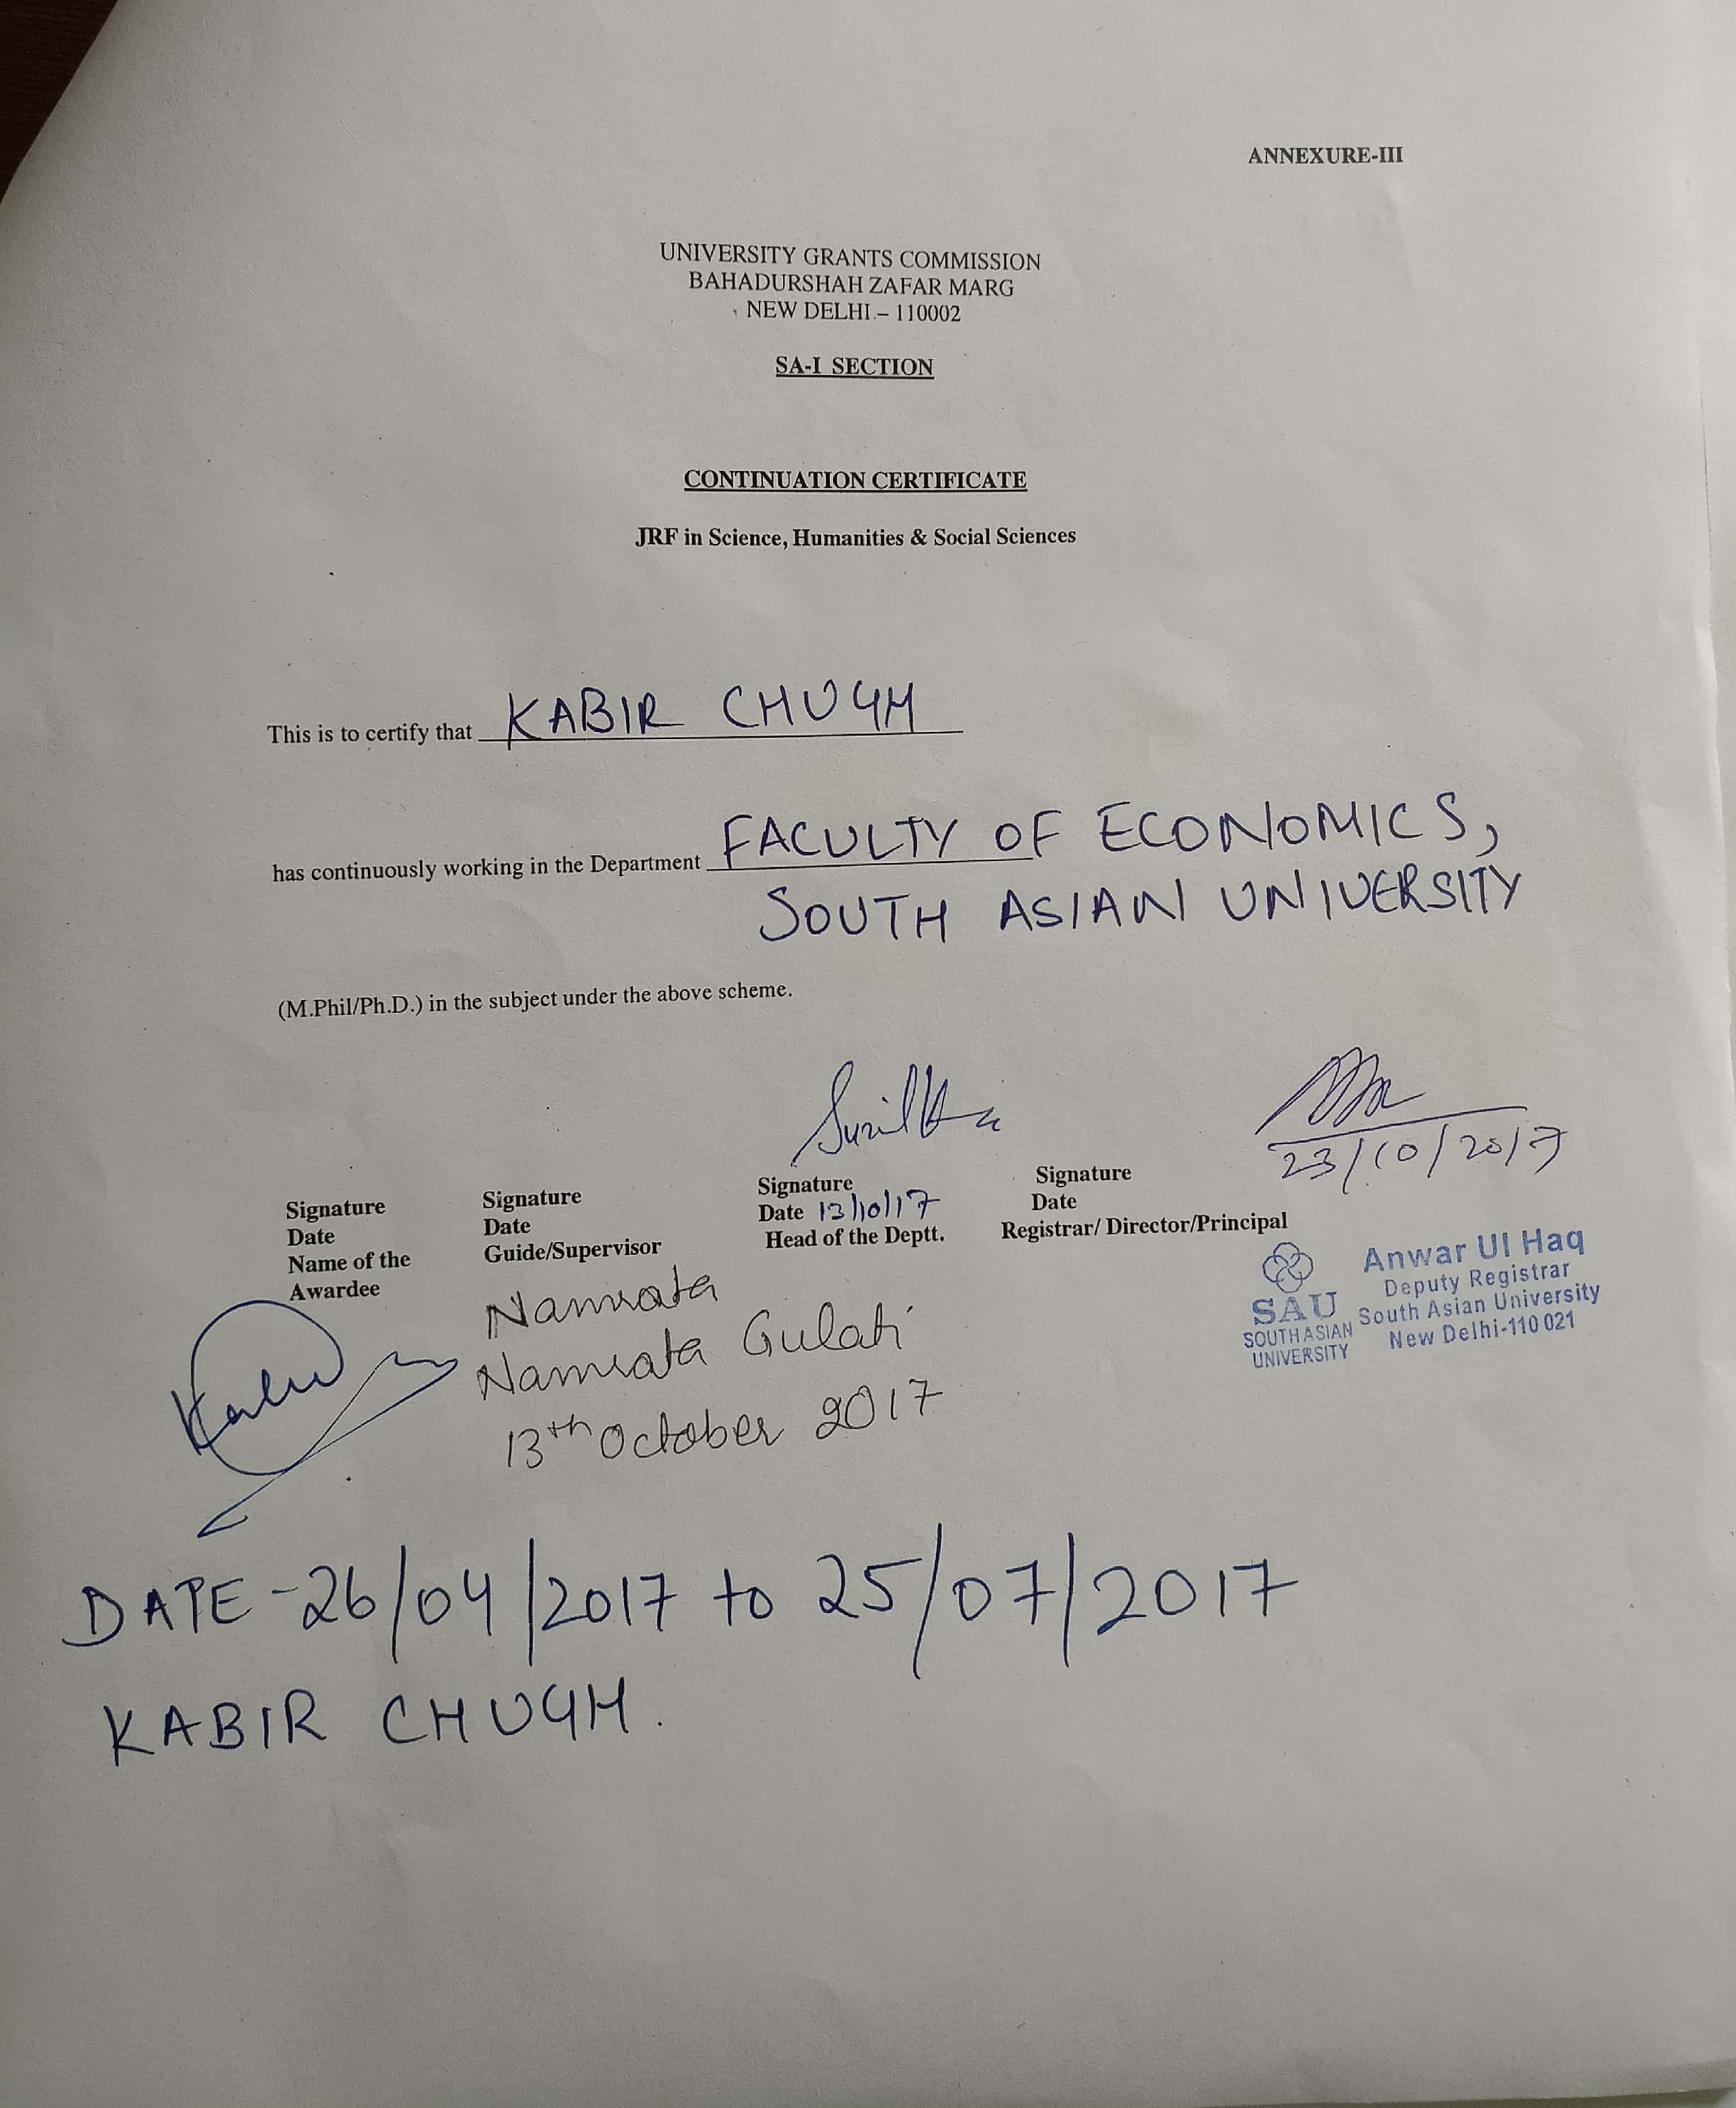 ANNEXURE-III
UNIVERSITY GRANTS COMMISSION
BAHADURSHAH ZAFAR MARG
NEW DELHI – 110002
SA-I SECTION
CONTINUATION CERTIFICATE
JRF in Science, Humanities & Social Sciences
This is to certify that KABIR CHUGH
has continuously working in the Department FACULTY OF ECONOMICS,
SOUTH ASIAN UNIVERSITY
(M.Phil/Ph.D.) in the subject under the above scheme.
23/10/2017
Signature
Date
Name of the
Awardee
Signature
Date
Guide/Supervisor
Namrata
Namrata Gulati
13th October 2017
Signature
Date 13/10/17
Head of the Deptt.
Signature
Date
Registrar/ Director/Principal
SAU
SOUTH ASIAN
UNIVERSITY
Anwar Ul Haq
Deputy Registrar
South Asian University
New Delhi-110 021
DATE - 26/04/2017 to 25/07/2017
KABIR CHUGH.